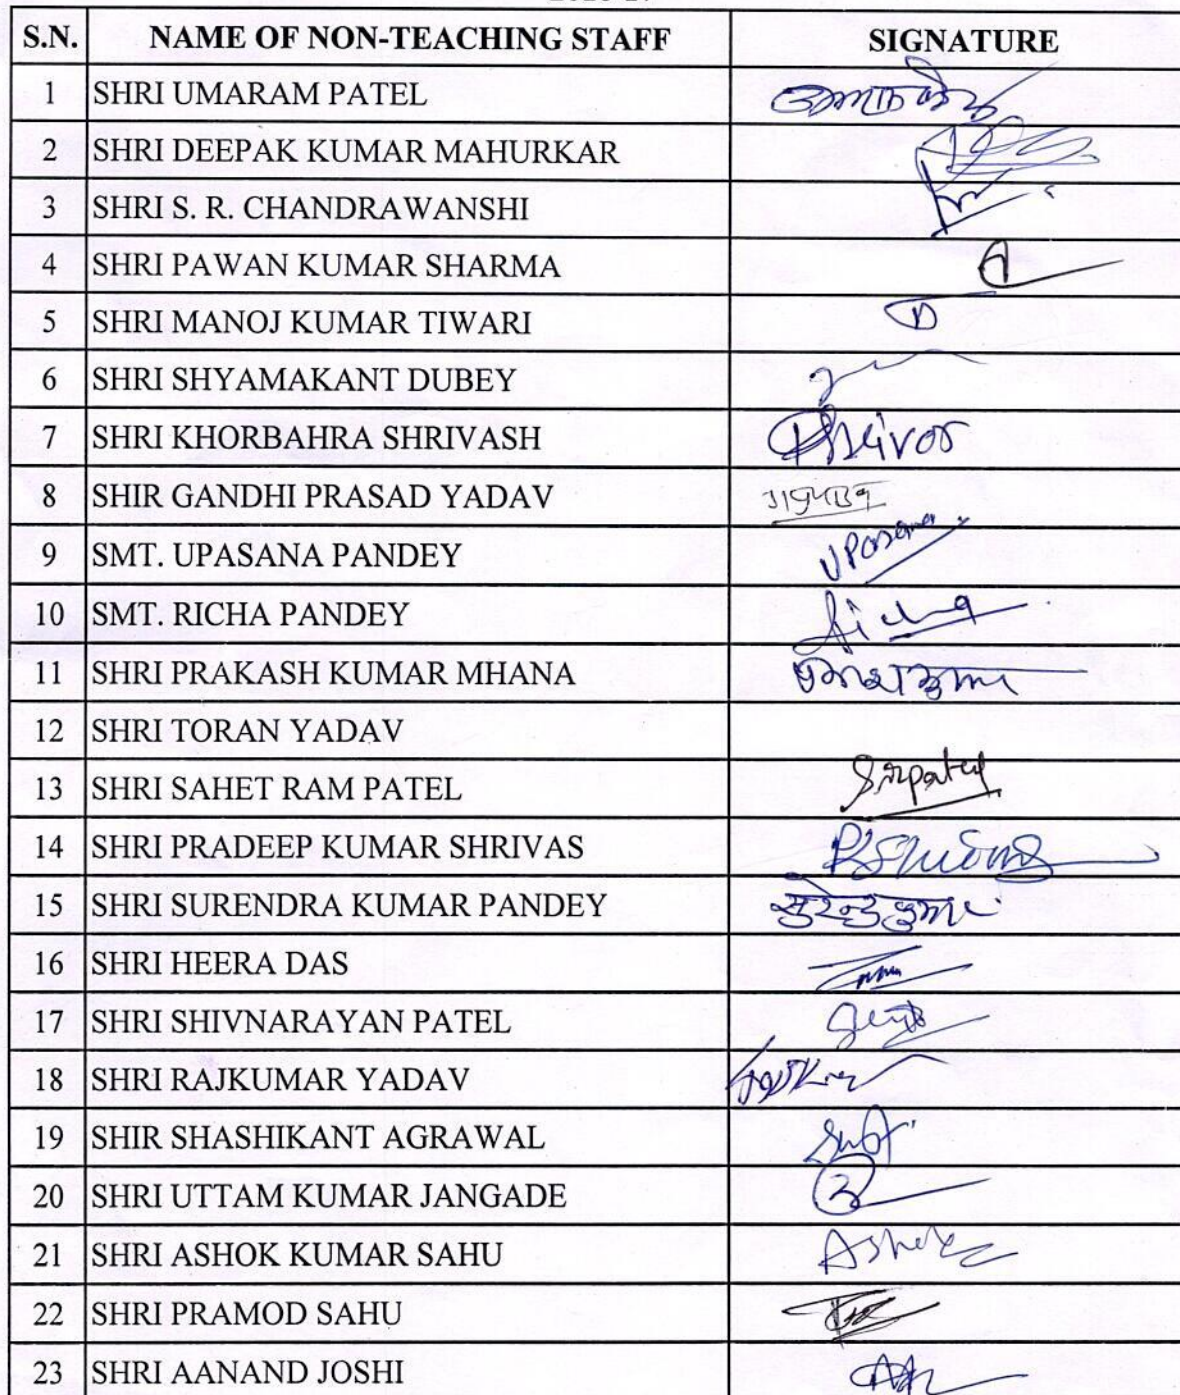 S.N. NAME OF NON-TEACHING STAFF SIGNATURE
1 SHRI UMARAM PATEL
2 SHRI DEEPAK KUMAR MAHURKAR
3 SHRI S. R. CHANDRAWANSHI
4 SHRI PAWAN KUMAR SHARMA
5 SHRI MANOJ KUMAR TIWARI
6 SHRI SHYAMAKANT DUBEY
7 SHRI KHORBAHRA SHRIVASH
8 SHIR GANDHI PRASAD YADAV
9 SMT. UPASANA PANDEY Upasana
10 SMT. RICHA PANDEY Richa
11 SHRI PRAKASH KUMAR MHANA
12 SHRI TORAN YADAV
13 SHRI SAHET RAM PATEL Srpatel
14 SHRI PRADEEP KUMAR SHRIVAS
15 SHRI SURENDRA KUMAR PANDEY सुरेन्द्र कुमार
16 SHRI HEERA DAS
17 SHRI SHIVNARAYAN PATEL
18 SHRI RAJKUMAR YADAV
19 SHIR SHASHIKANT AGRAWAL
20 SHRI UTTAM KUMAR JANGADE
21 SHRI ASHOK KUMAR SAHU Ashok
22 SHRI PRAMOD SAHU
23 SHRI AANAND JOSHI